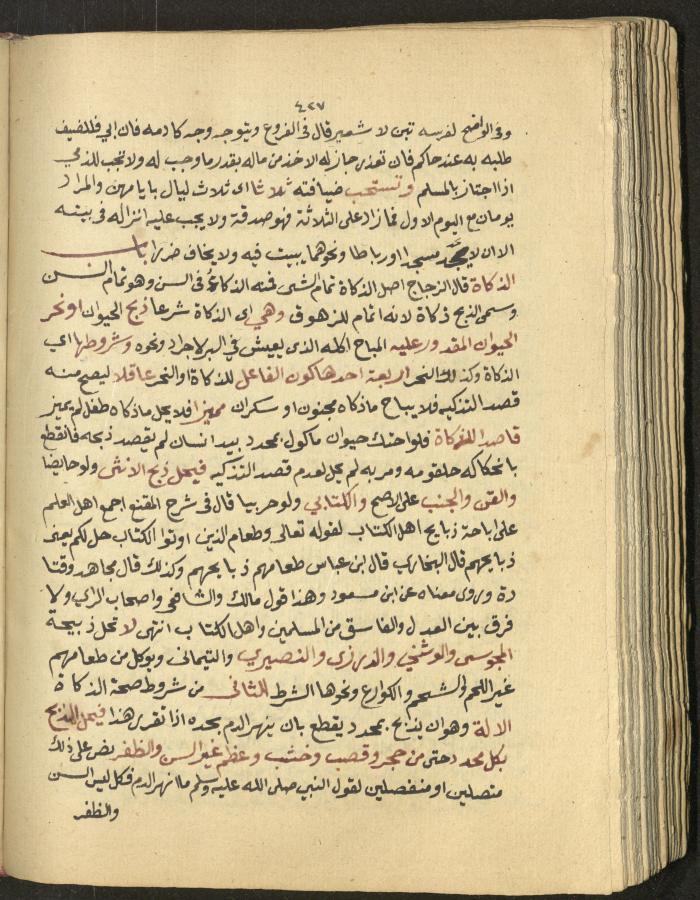 ٤٢٧
وفي الواضح لفرسه تبن لا شعير قال في الفروع ويتوجه وجه كادمه فان ابي فللضيف
طلبه به عند حاكم فان تعذر جاز له الاخذ من ماله بقدر ما وجب له ولا تجب للذمي
اذا اجتاز بالمسلم وتستحب ضيافته ثلاثا اي ثلاث ليال بايامهن والمراد
يومان مع اليوم الاول فما زاد على الثلاثة فهو صدقة ولا يجب عليه انزاله في بيته
الا ان لا يجد مسجدا او رباطا ونحوهما يبيت فيه ولا يخاف ضررا باب
الذكاة قال الزجاج اصل الذكاة تمام الشيء فمنه الذكاء في السن وهو تمام السن
وسمي الذبح ذكاة لانه اتمام للزهوق وهي اي الذكاة شرعا ذبح الحيوان او نحر
الحيوان المقدور عليه المباح اكله الذي يعيش في البر لا جراد ونحوه وشروطها اي
الذكاة وكذلك النحر اربعة احدها كون الفاعل للذكاة او النحر عاقلا ليصح منه
قصد التذكيه فلا يباح ما ذكاه مجنون او سكران مميزا فلا يحل ما ذكاه طفل لم يميز
قاصدا للذكاة فلو احتك حيوان ماكول بمحدد بيد انسان لم يقصد ذبحه فانقطع
بانحكاكه حلقومه ومريه لم يحل لعدم قصد التذكيه فيحل ذبح الانثى ولو حايضا
والقن والجنب على الاصح والكتابي ولو حربيا قال في شرح المقنع اجمع اهل العلم
على اباحة ذبايح اهل الكتاب لقوله تعالى وطعام الذين اوتوا الكتاب حل لكم يعني
ذبايحهم قال البخاري قال ابن عباس طعامهم ذبايحهم وكذلك قال مجاهد وقتا
دة وروي معناه عن ابن مسعود وهذا قول مالك والشافعي واصحاب الراي ولا
فرق بين العدل والفاسق من المسلمين واهل الكتاب انتهى لا تحل ذبيحة
المجوسي والوثني والدرزي والنصيري والتيماني ويوكل من طعامهم
غير اللحم والشحم والكوارع ونحوها الشرط الثاني من شروط صحة الذكاة
الالة وهو ان يذبح بمحدد يقطع بان ينهر الدم بحده اذا تقرر هذا فيحل الذبح
بكل محدد حتى من حجر وقصب وخشب وعظم غير السن والظفر نص على ذلك
متصلين او منفصلين لقول النبي صلى الله عليه وسلم ما انهر الدم فكل ليس السن
والظفر